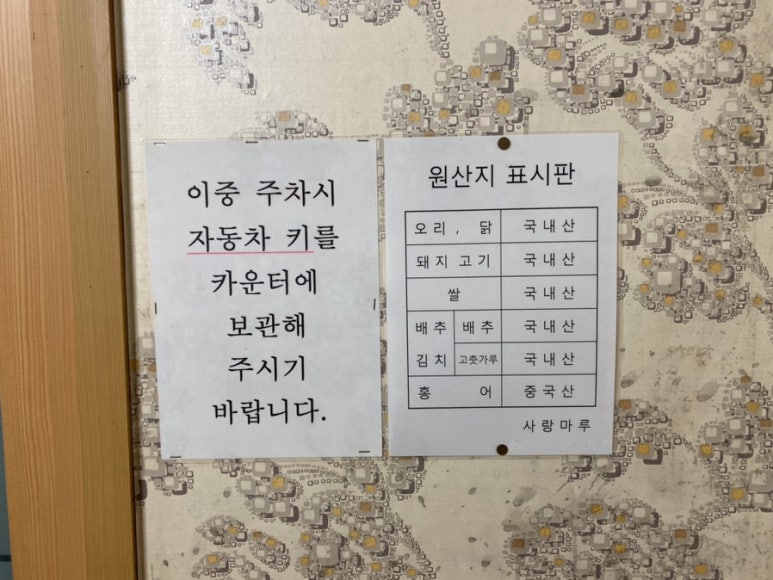 이중 주차시
자동차 키를
카운터에
보관해
주시기
바랍니다.
원산지 표시판
오리, 닭 국내산
돼지고기 국내산
쌀 국내산
배추 배추 국내산
김치 고춧가루 국내산
홍어 중국산
사랑마루